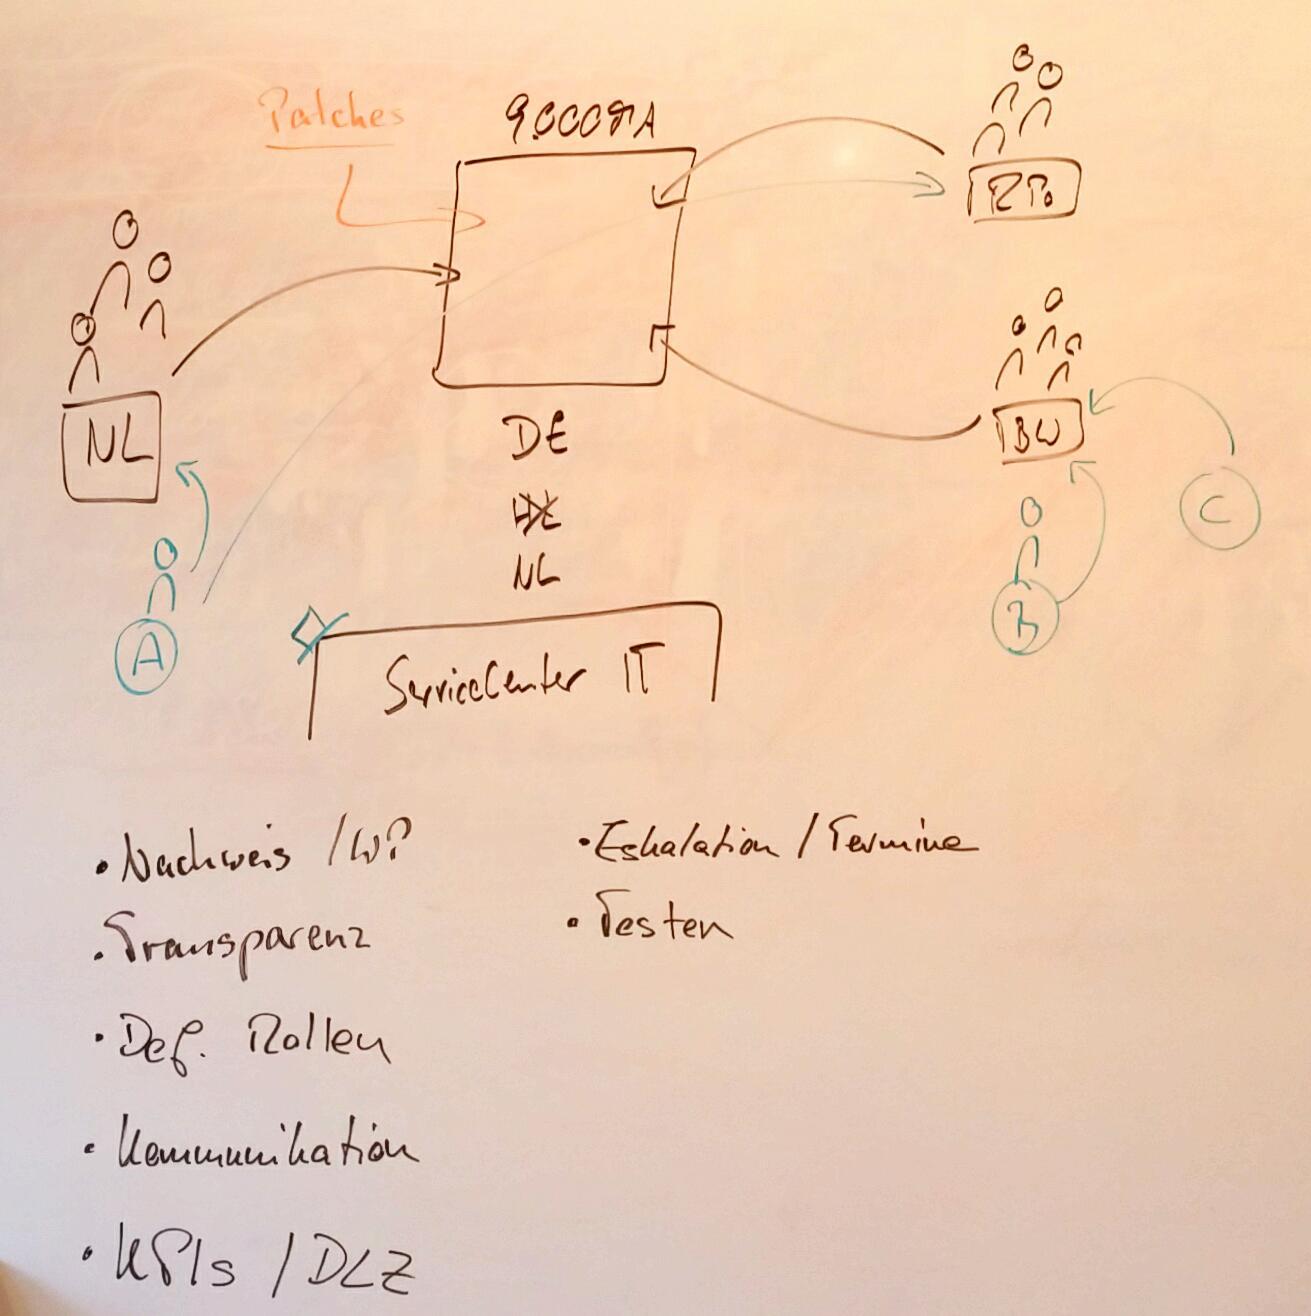 Patches
DE
NL
NL
BW
A
B
C
ServiceCenter IT
• Nachweis / W?
• Transparenz
• Def. Rollen
• Kommunikation
• KPIs / DLZ
• Eskalation / Termine
• Testen